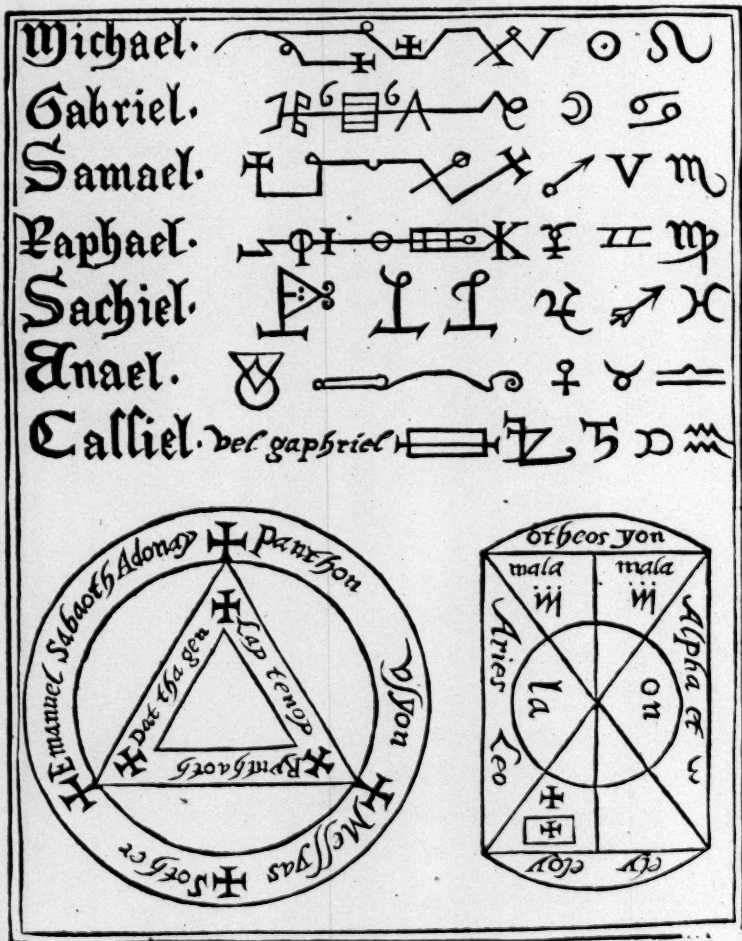 Michael.
Gabriel.
Samael.
Raphael.
Sachiel.
Anael.
Caſſiel. vel. gaphriel
Emanuel Sabaoth Adonay
Panthon
Vſyon
Meſſyas
Sother
Dat tha gen
Lap tenop
Rynthaoth
otheos yon
mala
mala
Aries Leo
Alpha et ω
la
on
eloy
ely